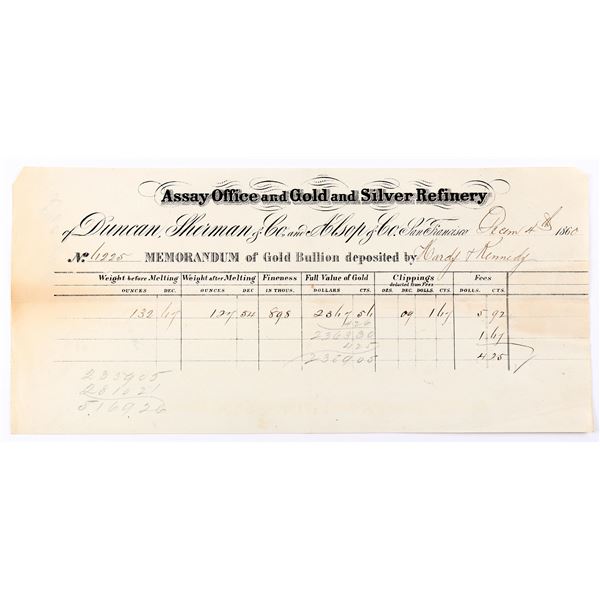 Assay Office and Gold and Silver Refinery
of Duncan, Sherman & Co. and Alsop & Co. San Francisco Decem 4th 1860
No. 11225 MEMORANDUM of Gold Bullion deposited by Hardy & Kennedy
Weight before Melting Weight after Melting Fineness Full Value of Gold Clippings Fees
deducted from Fees
OUNCES DEC. OUNCES DEC. IN THOUS. DOLLARS CTS. OZS. DEC. DOLLS. CTS. DOLLS. CTS.
132 67 127 54 898 2367 56 09 1 67 5 92
4 26 1 67
2363 30 4 25
4 25
2359 05
2359 05
2810 21
5169 26